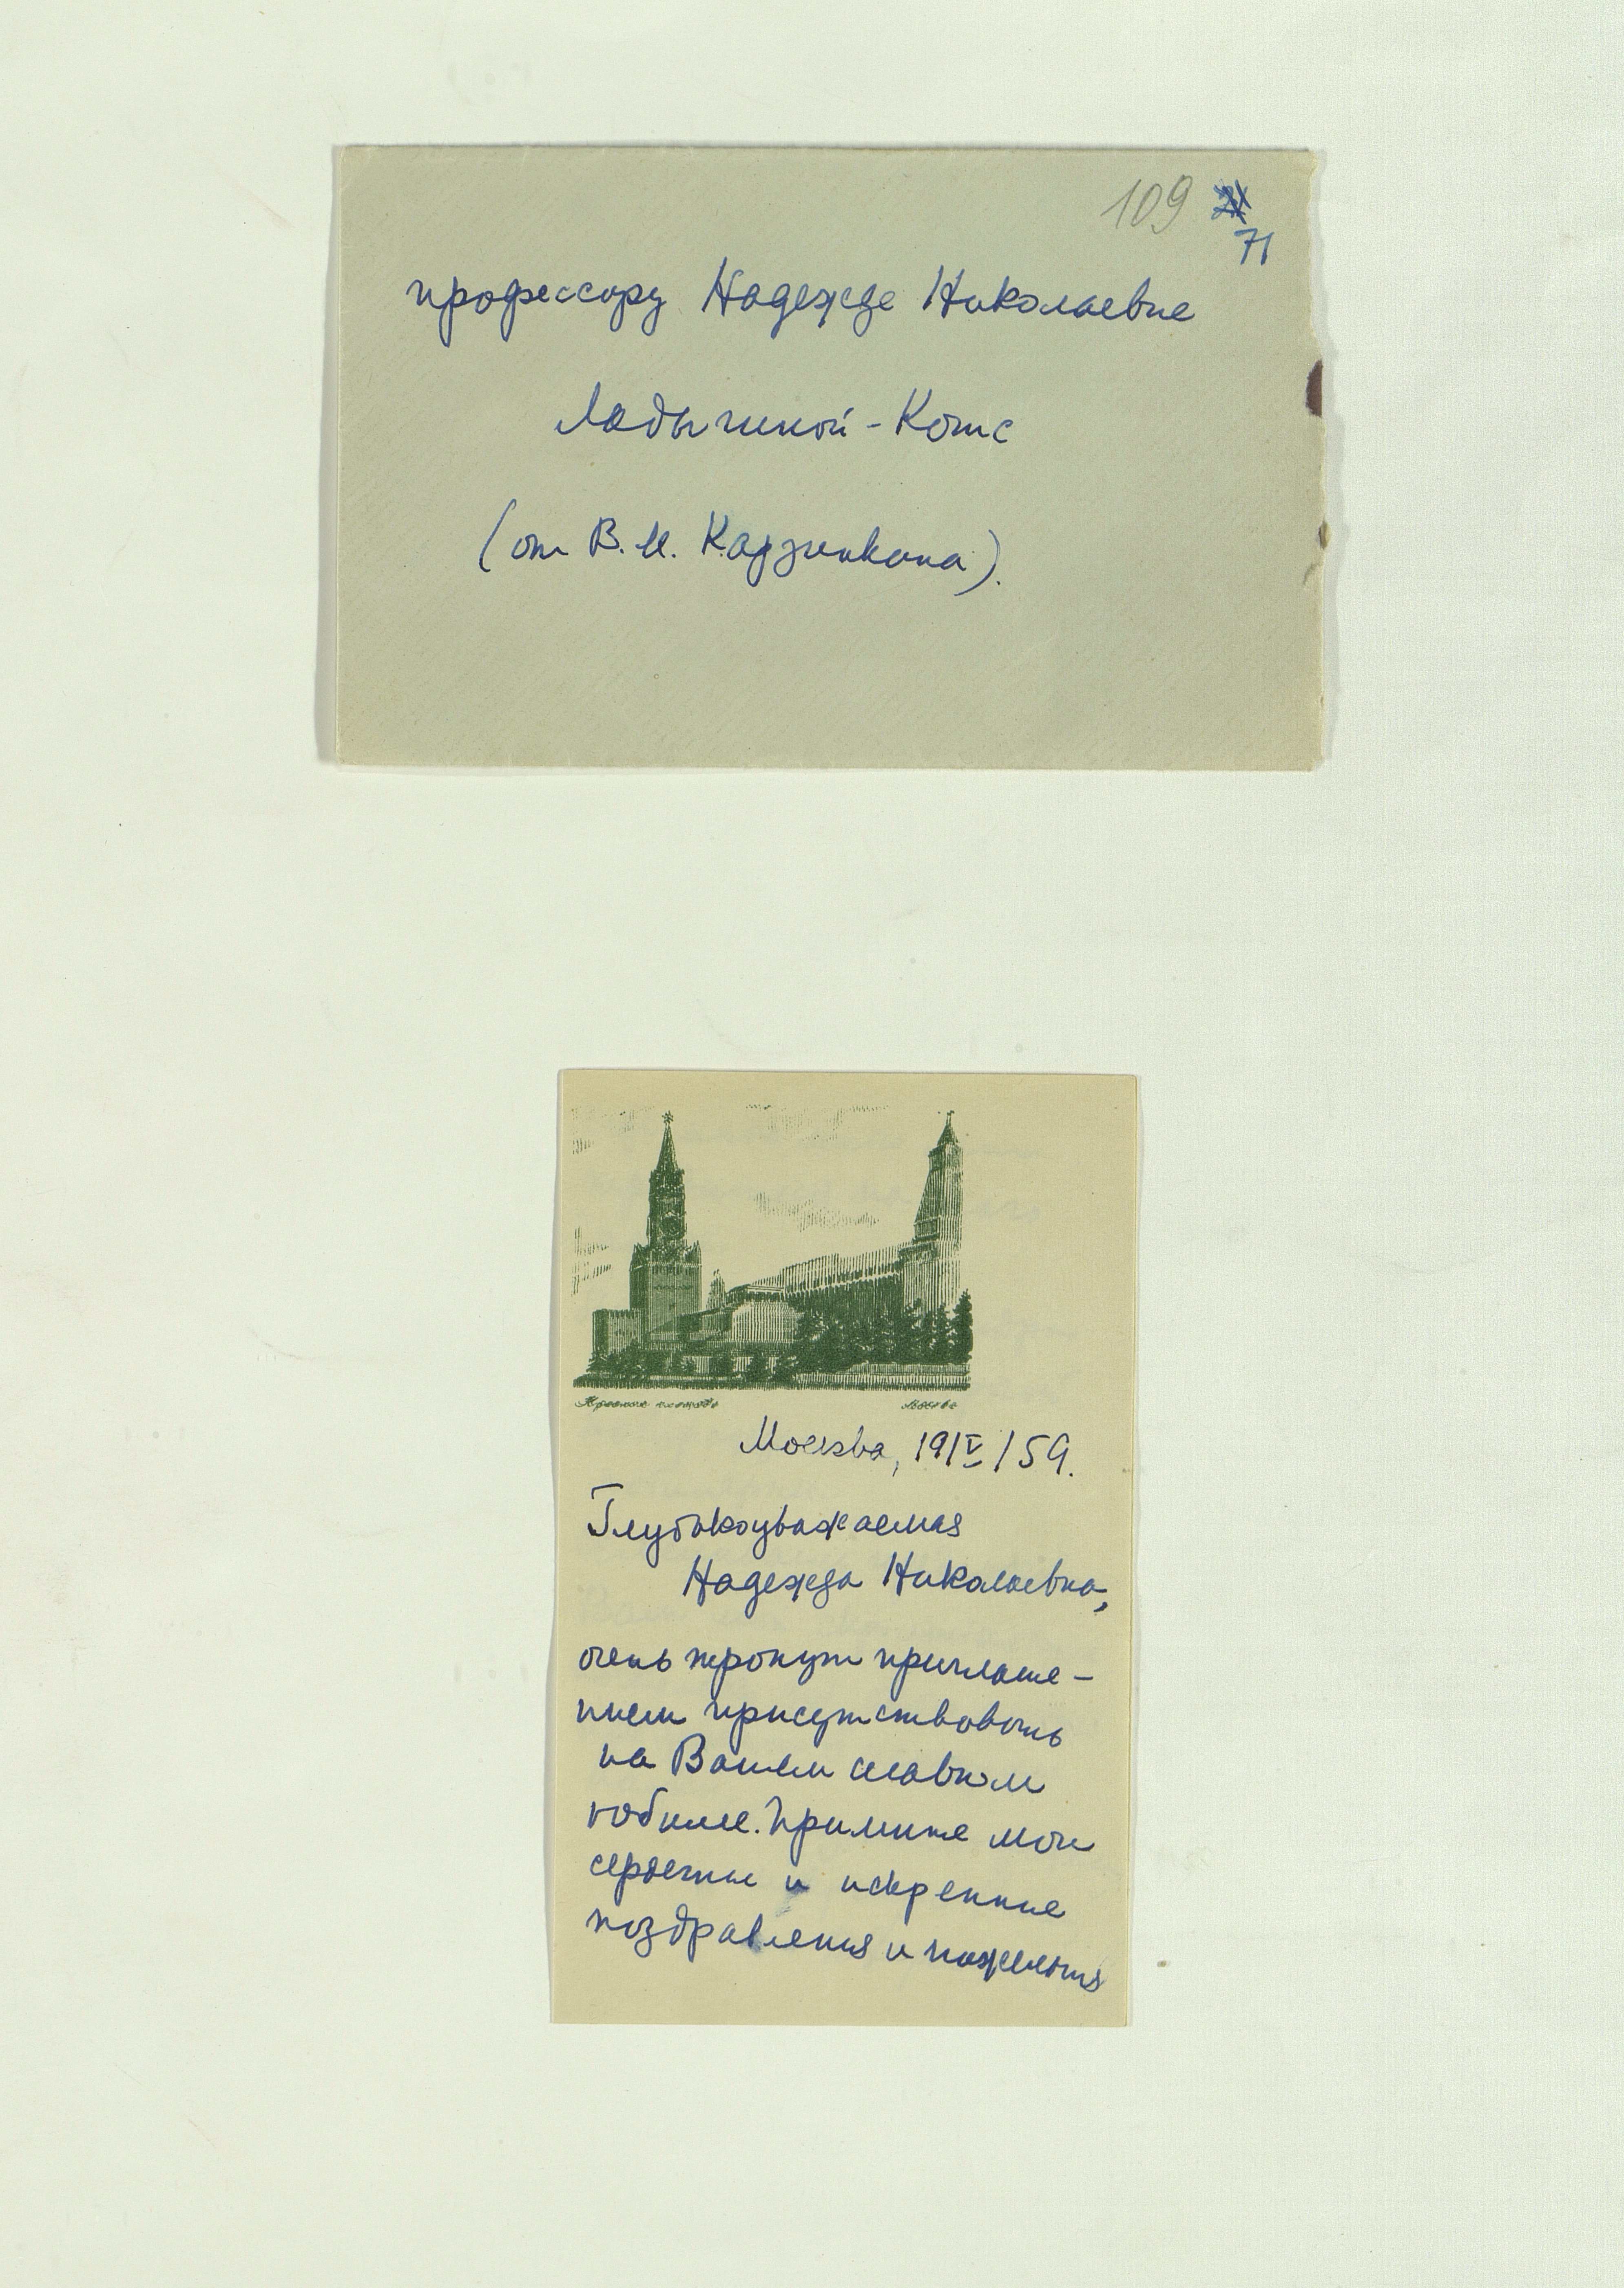 109
71
профессору Надежде Николаевне
Ладыгиной-Котс
(от В. И. Карзинкина).
Красная площадь Москва
Москва, 19/V/59.
Глубокоуважаемая
Надежда Николаевна,
очень тронут приглаше-
нием присутствовать
на Вашем славном
юбилее. Примите мои
сердечные и искренние
поздравления и пожелания